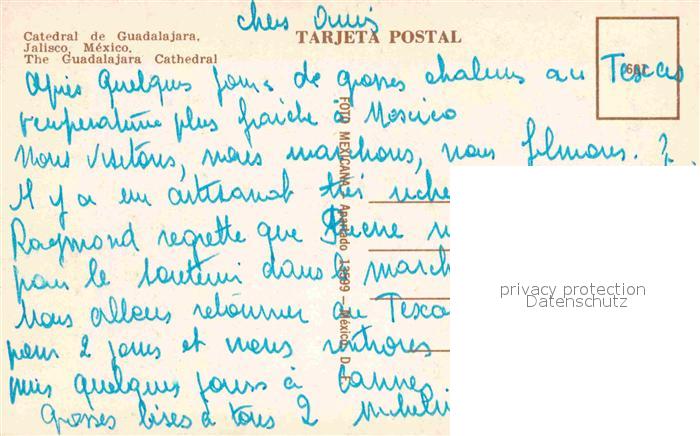 chers Amis
Catedral de Guadalajara,
Jalisco, México.
The Guadalajara Cathedral
TARJETA POSTAL
Après quelques jours de grosses chaleurs au Texas
température plus fraiche à Mexico
Nous visitons, nous marchons, nous filmons.
Il y a un artisanat très riche
Raymond regrette que
pour le soutenir dans la march
Nous allons retourner au Texa
pour 2 jours et nous rentrons
puis quelques jours à Cannes
Grosses bises à tous 2
FOTO MEXICANA. Apartado 13599 — México, D. F.
privacy protection
Datenschutz